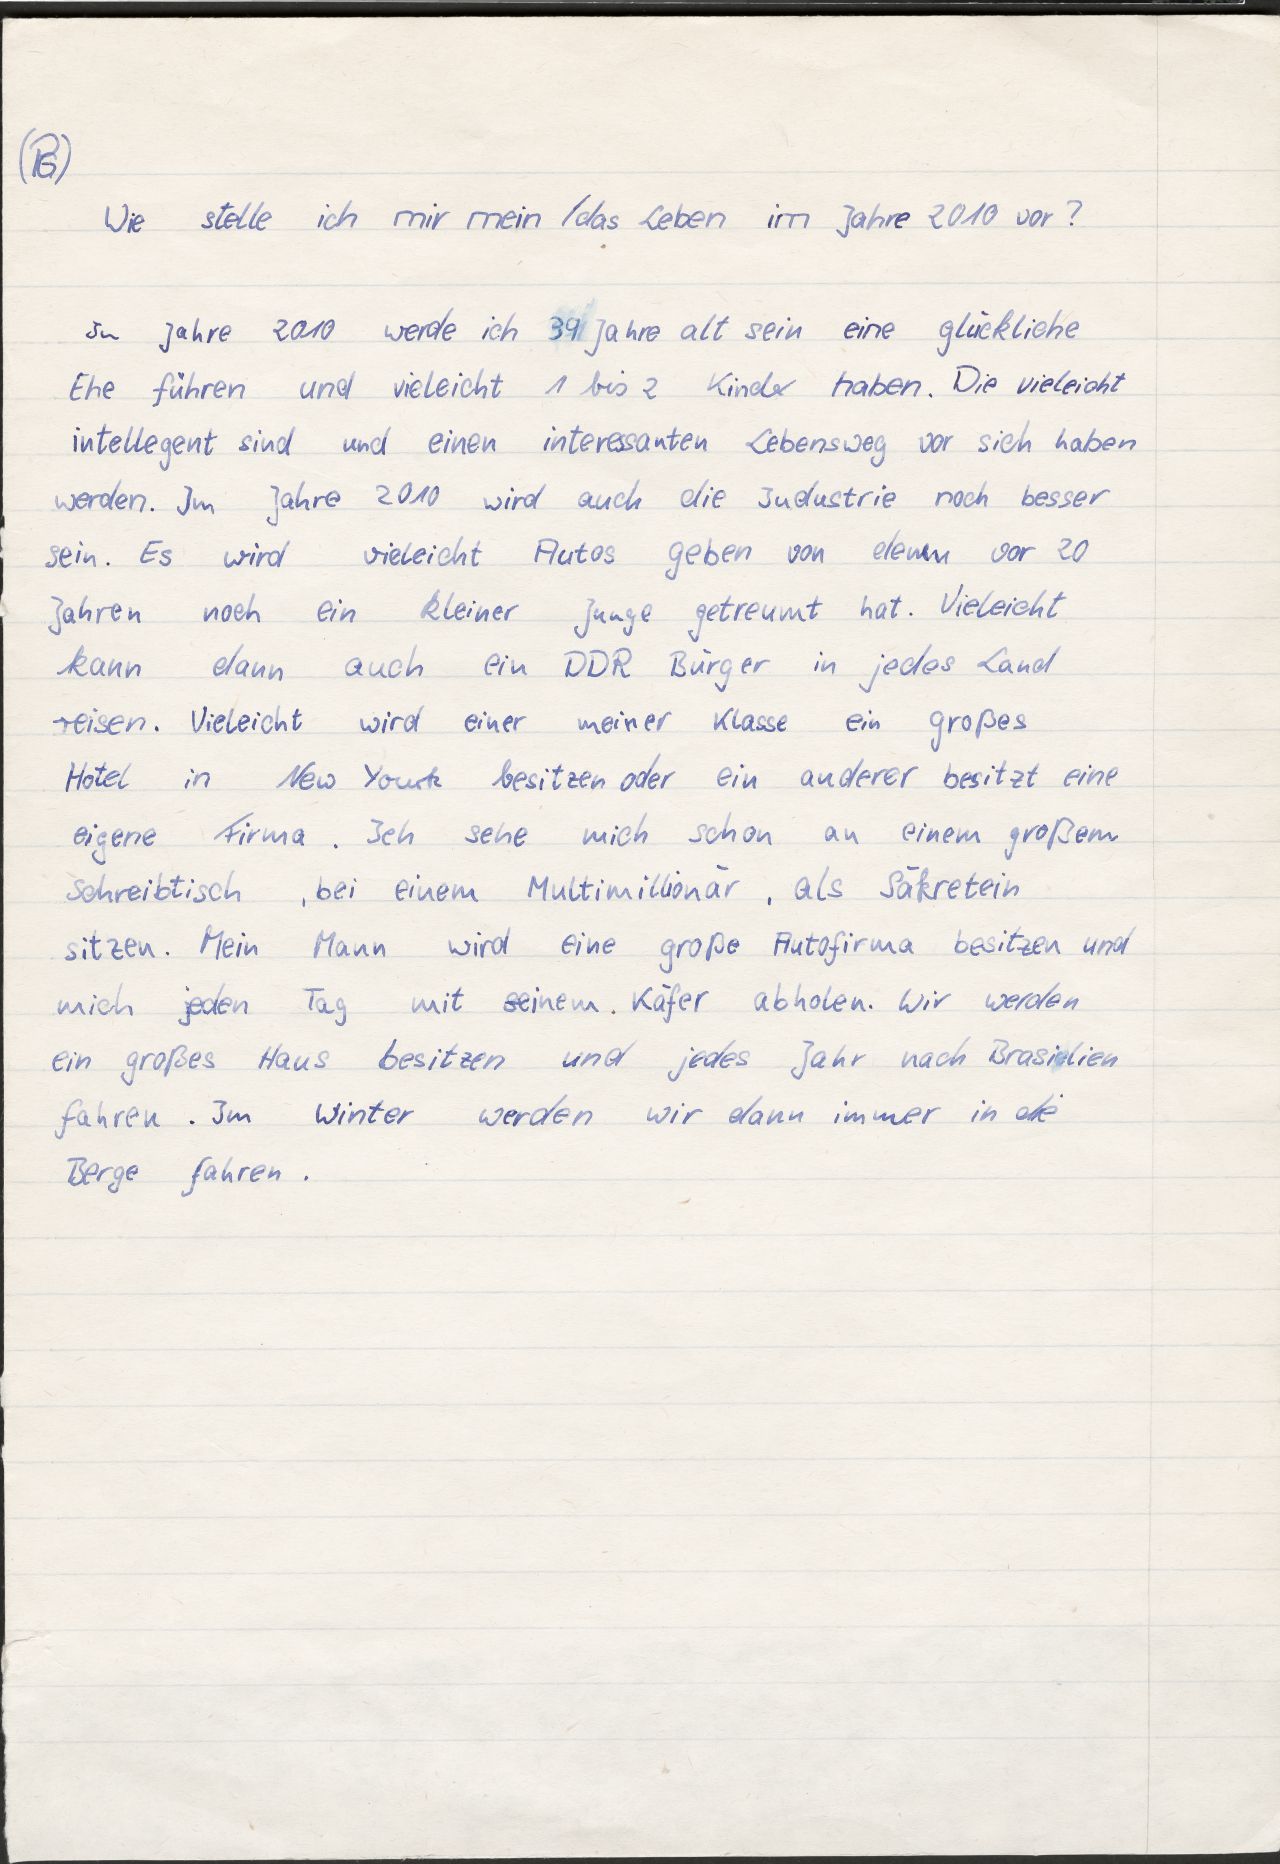 Wie stelle ich mir mein/das Leben im Jahre 2010 vor?
In Jahre 2010 werde ich 39 Jahre alt sein eine glückliche
Ehe führen und vieleicht 1 bis 2 Kinder haben. Die vieleicht
intellegent sind und einen interessanten Lebensweg vor sich haben
werden. Im Jahre 2010 wird auch die Industrie noch besser
sein. Es wird vieleicht Autos geben von denen vor 20
Jahren noch ein kleiner Junge getreumt hat. Vieleicht
kann dann auch ein DDR Bürger in jedes Land
reisen. Vieleicht wird einer meiner Klasse ein großes
Hotel in New Yourk besitzen oder ein anderer besitzt eine
eigene Firma. Ich sehe mich schon an einem großem
Schreibtisch, bei einem Multimillionär, als Säkretein
sitzen. Mein Mann wird eine große Autofirma besitzen und
mich jeden Tag mit seinem. Käfer abholen. Wir werden
ein großes Haus besitzen und jedes Jahr nach Brasilien
fahren. Im Winter werden wir dann immer in die
Berge fahren.